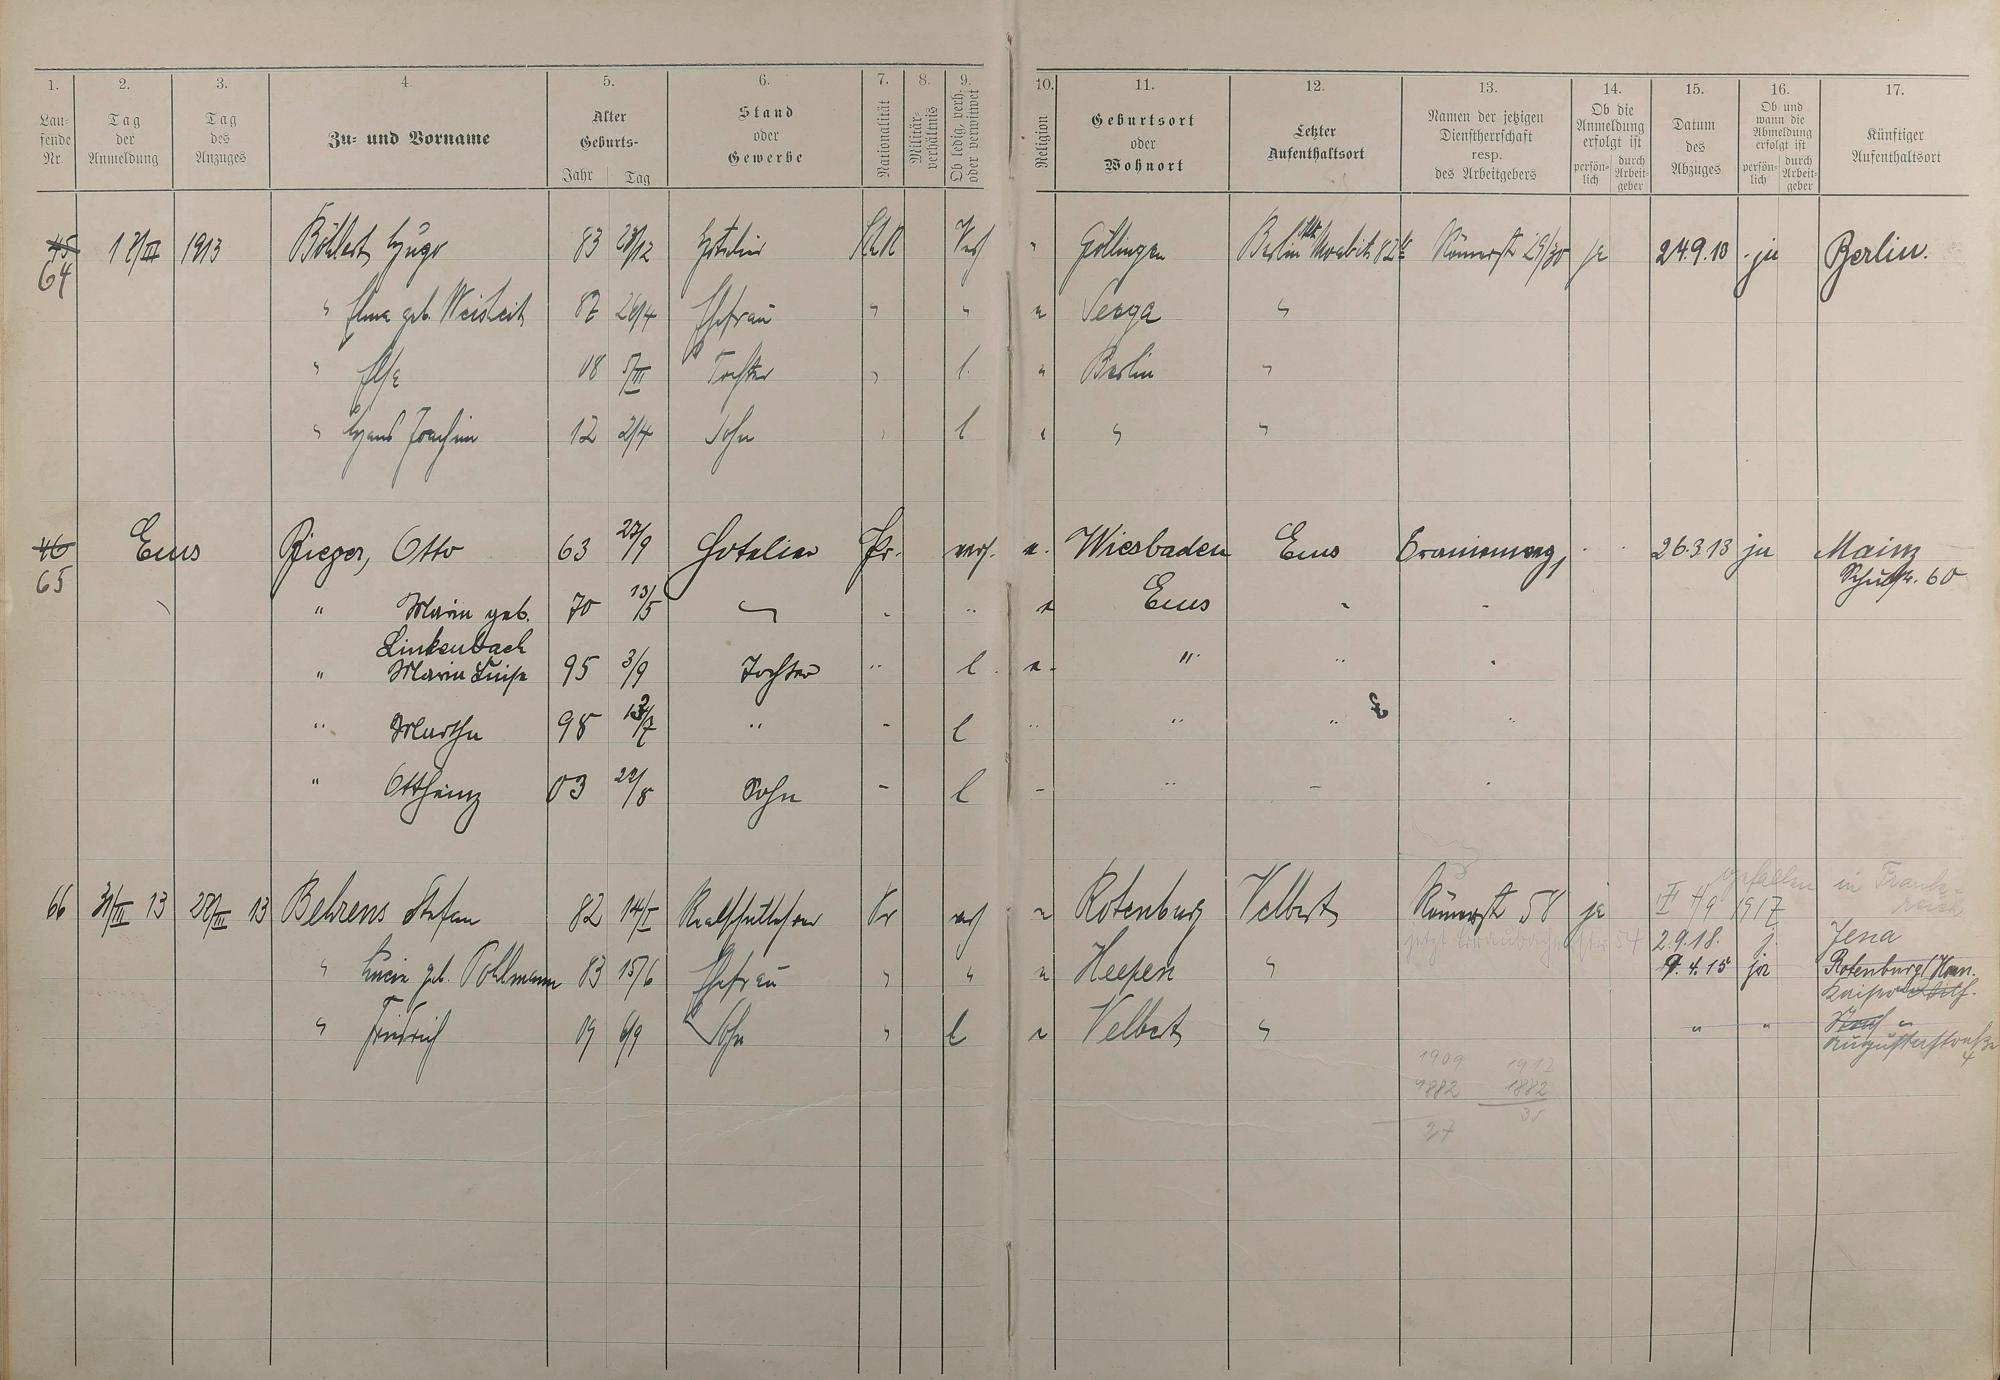 1. 2. 3. 4. 5. 6. 7. 8. 9. 10. 11. 12. 13. 14. 15. 16. 17.
Lau-
fende
Nr.
Tag
der
Anmeldung
Tag
des
Anzuges
Zu- und Vorname
Alter
Geburts-
Jahr Tag
Stand
oder
Gewerbe
Nationalität
Militär-
verhältnis
Ob ledig, verh.
oder verwitwet
Religion
Geburtsort
oder
Wohnort
Letzter
Aufenthaltsort
Namen der jetzigen
Dienstherrschaft
resp.
des Arbeitgebers
Ob die
Anmeldung
erfolgt ist
persön-
lich
durch
Arbeit-
geber
Datum
des
Abzuges
Ob und
wann die
Abmeldung
erfolgt ist
persön-
lich
durch
Arbeit-
geber
Künftiger
Aufenthaltsort
45 18/III 1913 Böhlert Hugo 83 28/12 Hotelier Verh " Göllingen Berlin Moabit 82 Römerstr 29/30 ja 24.9.13 ja Berlin.
64
" geb. Weisheit 87 26/4 Ehefrau " " " "
" Else 08 5/III Tochter " l. " Berlin "
" Hans Joachim 12 2/4 Sohn " l " " "
46 Ems Rieger, Otto 63 27/9 Hotelier Pr. verh. e. Wiesbaden Ems 26.3.13 ja Mainz
65 Schulstr. 60
" Marie geb. 70 13/5 " " e Ems " "
Linkenbach
" Marie Luise 95 3/9 Tochter " l. e. " " "
" Martha 98 " - l " " " "
" Ottheinz 03 22/8 Sohn - l - " - "
gefallen in Frank-
reich
66 31/III 13 28/III 13 Behrens Stefan 82 14/I Realschullehrer Pr verh e Rotenburg Velbert Römerstr 58 ja 4/9 1917
jetzt 54 2.9.18. j. Jena
" Lucie geb. Pohlmann 83 15/6 Ehefrau " " e Heepen " 9.4.15 ja Rotenburg/Hann.
" Friedrich 09 6/9 Sohn " l e Velbert " " " "
Augustastraße
4
1909 1917
1882 1882
27 35